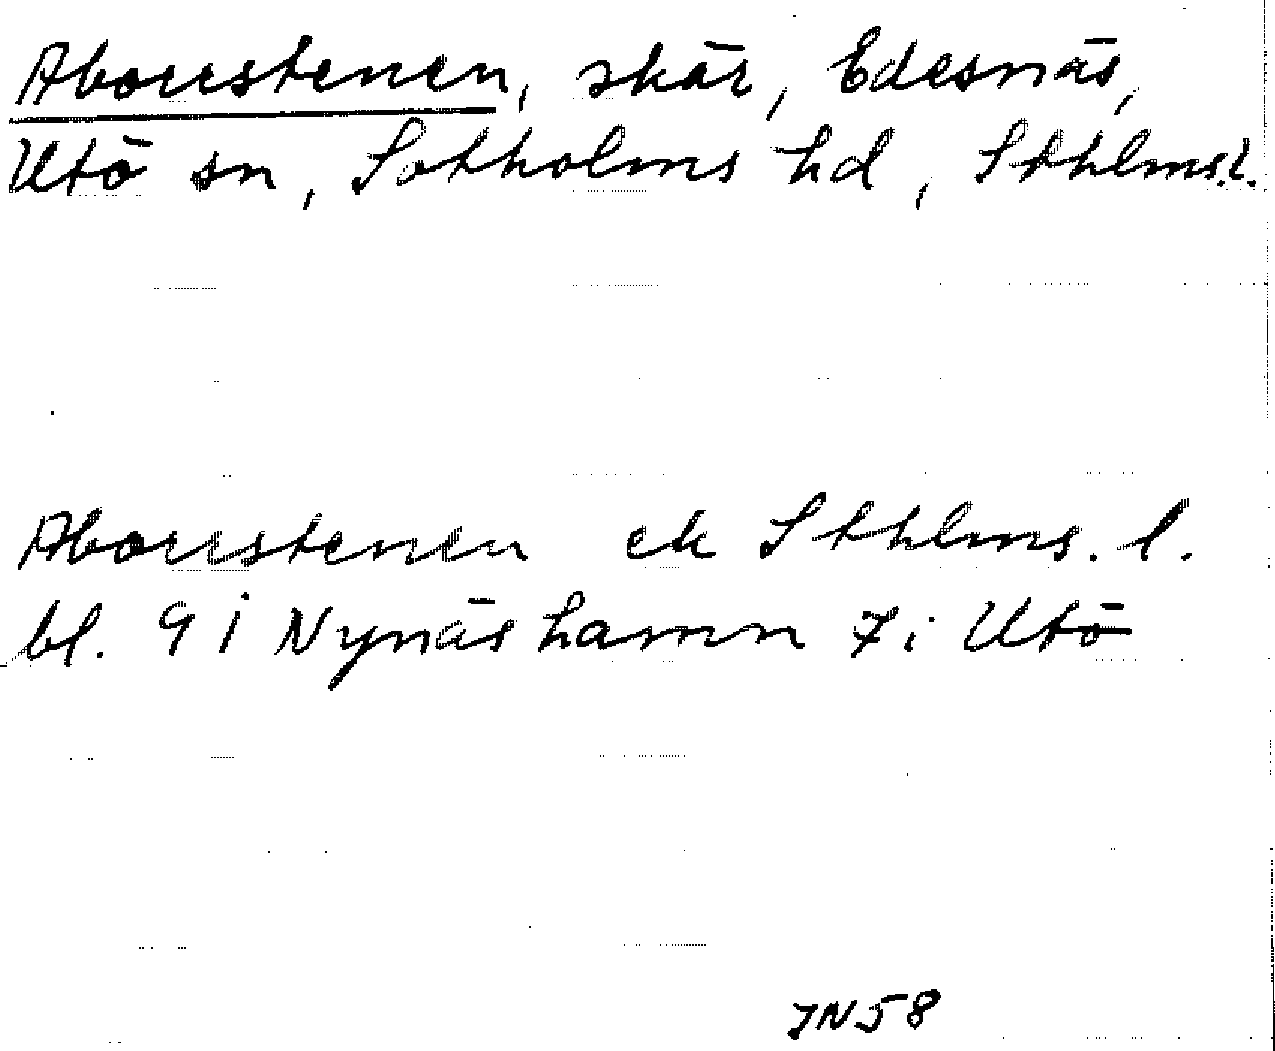 Aborrstenen, skär, Edesnäs,
Utö sn, Sotholms hd, Sthlms.l.
Aborrstenen ek Sthlms. l.
bl. 9 i Nynäshamn 7 i Utö
JN58